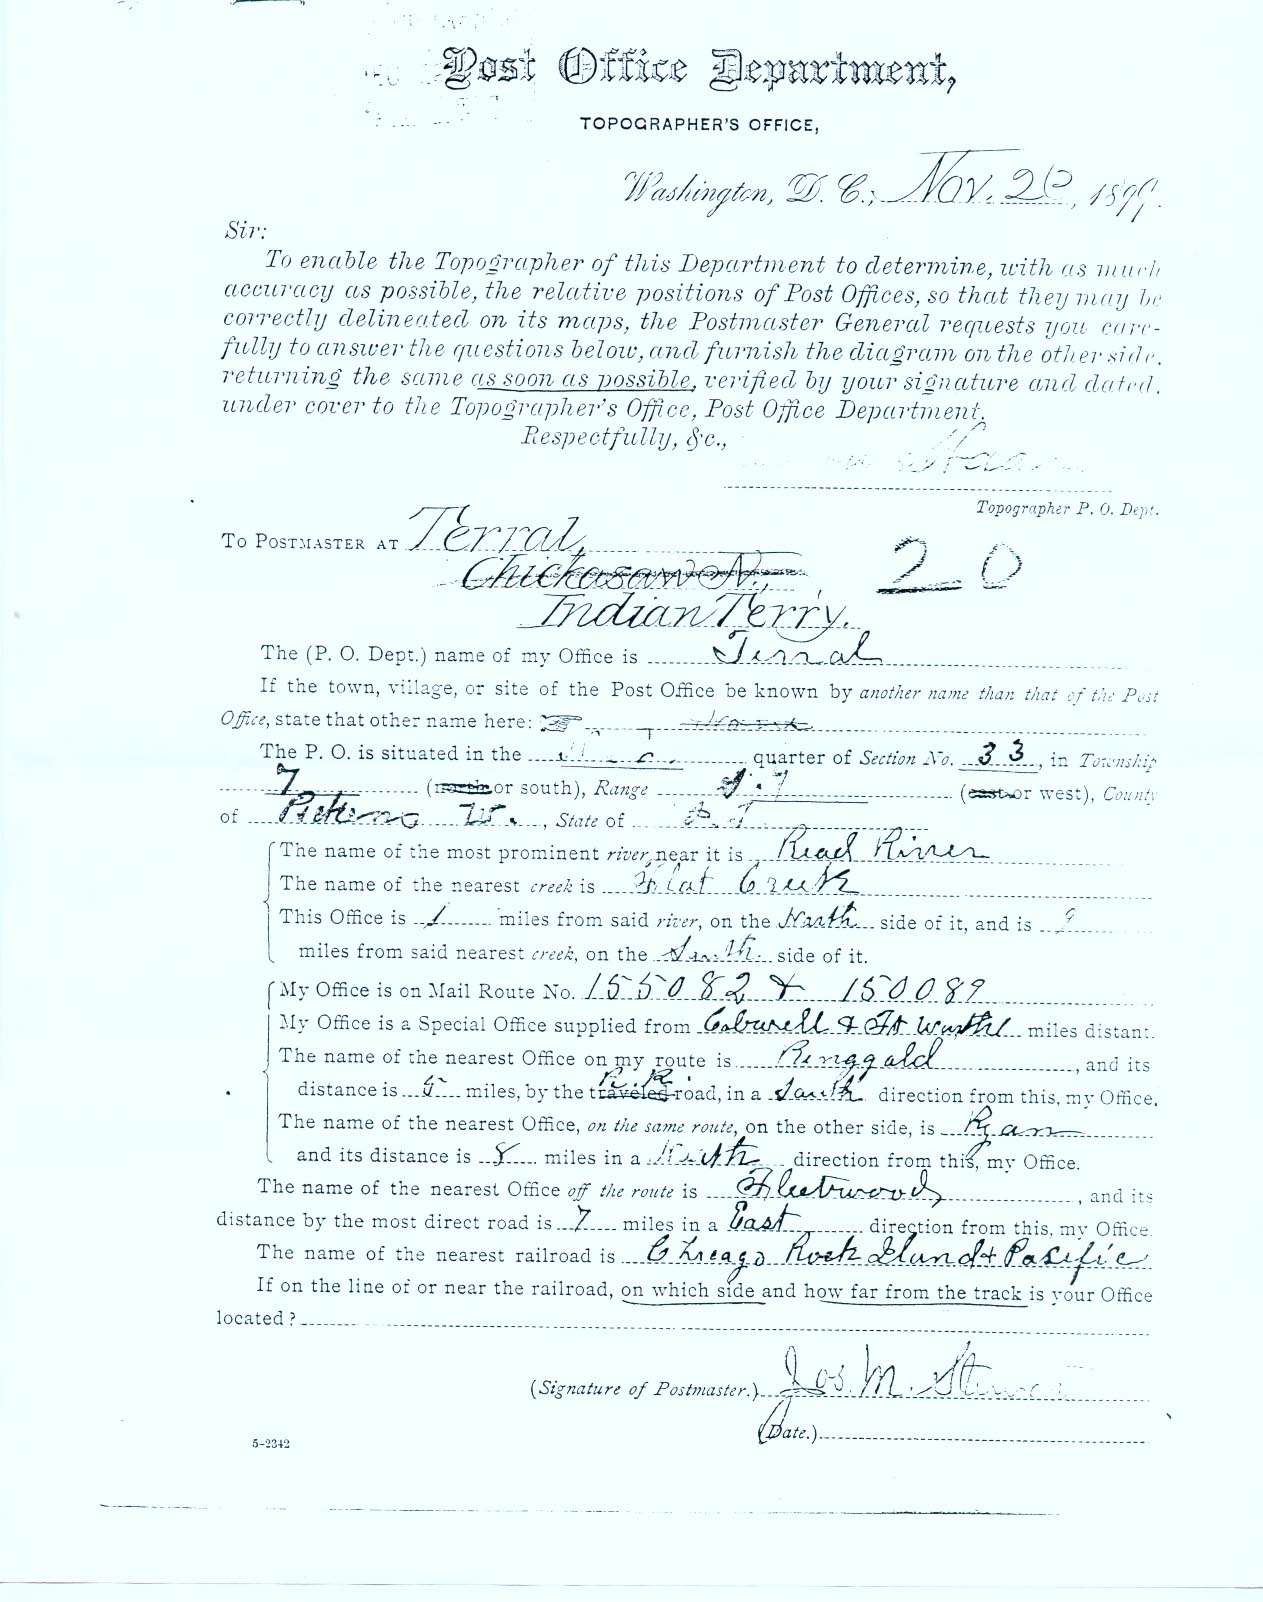 Post Office Department,
TOPOGRAPHER'S OFFICE,
Washington, D. C., Nov. 20, 1899.
Sir:
To enable the Topographer of this Department to determine, with as much
accuracy as possible, the relative positions of Post Offices, so that they may be
correctly delineated on its maps, the Postmaster General requests you care-
fully to answer the questions below, and furnish the diagram on the other side,
returning the same as soon as possible, verified by your signature and dated,
under cover to the Topographer's Office, Post Office Department.
Respectfully, &c.,
Topographer P. O. Dept.
To Postmaster at Terral,
Chickasaw N., 20
Indian Terry.
The (P. O. Dept.) name of my Office is Terral
If the town, village, or site of the Post Office be known by another name than that of the Post
Office, state that other name here:
The P. O. is situated in the quarter of Section No. 33, in Township
7 (north or south), Range 7 (east or west), County
of Pickens, State of I. T.
The name of the most prominent river near it is Read River
The name of the nearest creek is Flat Creek
This Office is 1 miles from said river, on the North side of it, and is
miles from said nearest creek, on the South side of it.
My Office is on Mail Route No. 155082 & 150089
My Office is a Special Office supplied from Colwell & Ft Worth miles distant.
The name of the nearest Office on my route is Ringgold, and its
distance is 5 miles, by the traveled R R road, in a South direction from this, my Office.
The name of the nearest Office, on the same route, on the other side, is Ryan
and its distance is 8 miles in a North direction from this, my Office.
The name of the nearest Office off the route is Fleetwood, and its
distance by the most direct road is 7 miles in a East direction from this, my Office.
The name of the nearest railroad is Chicago Rock Iland & Pasific
If on the line of or near the railroad, on which side and how far from the track is your Office
located?
(Signature of Postmaster.) Jos. M.
(Date.)
5-2342